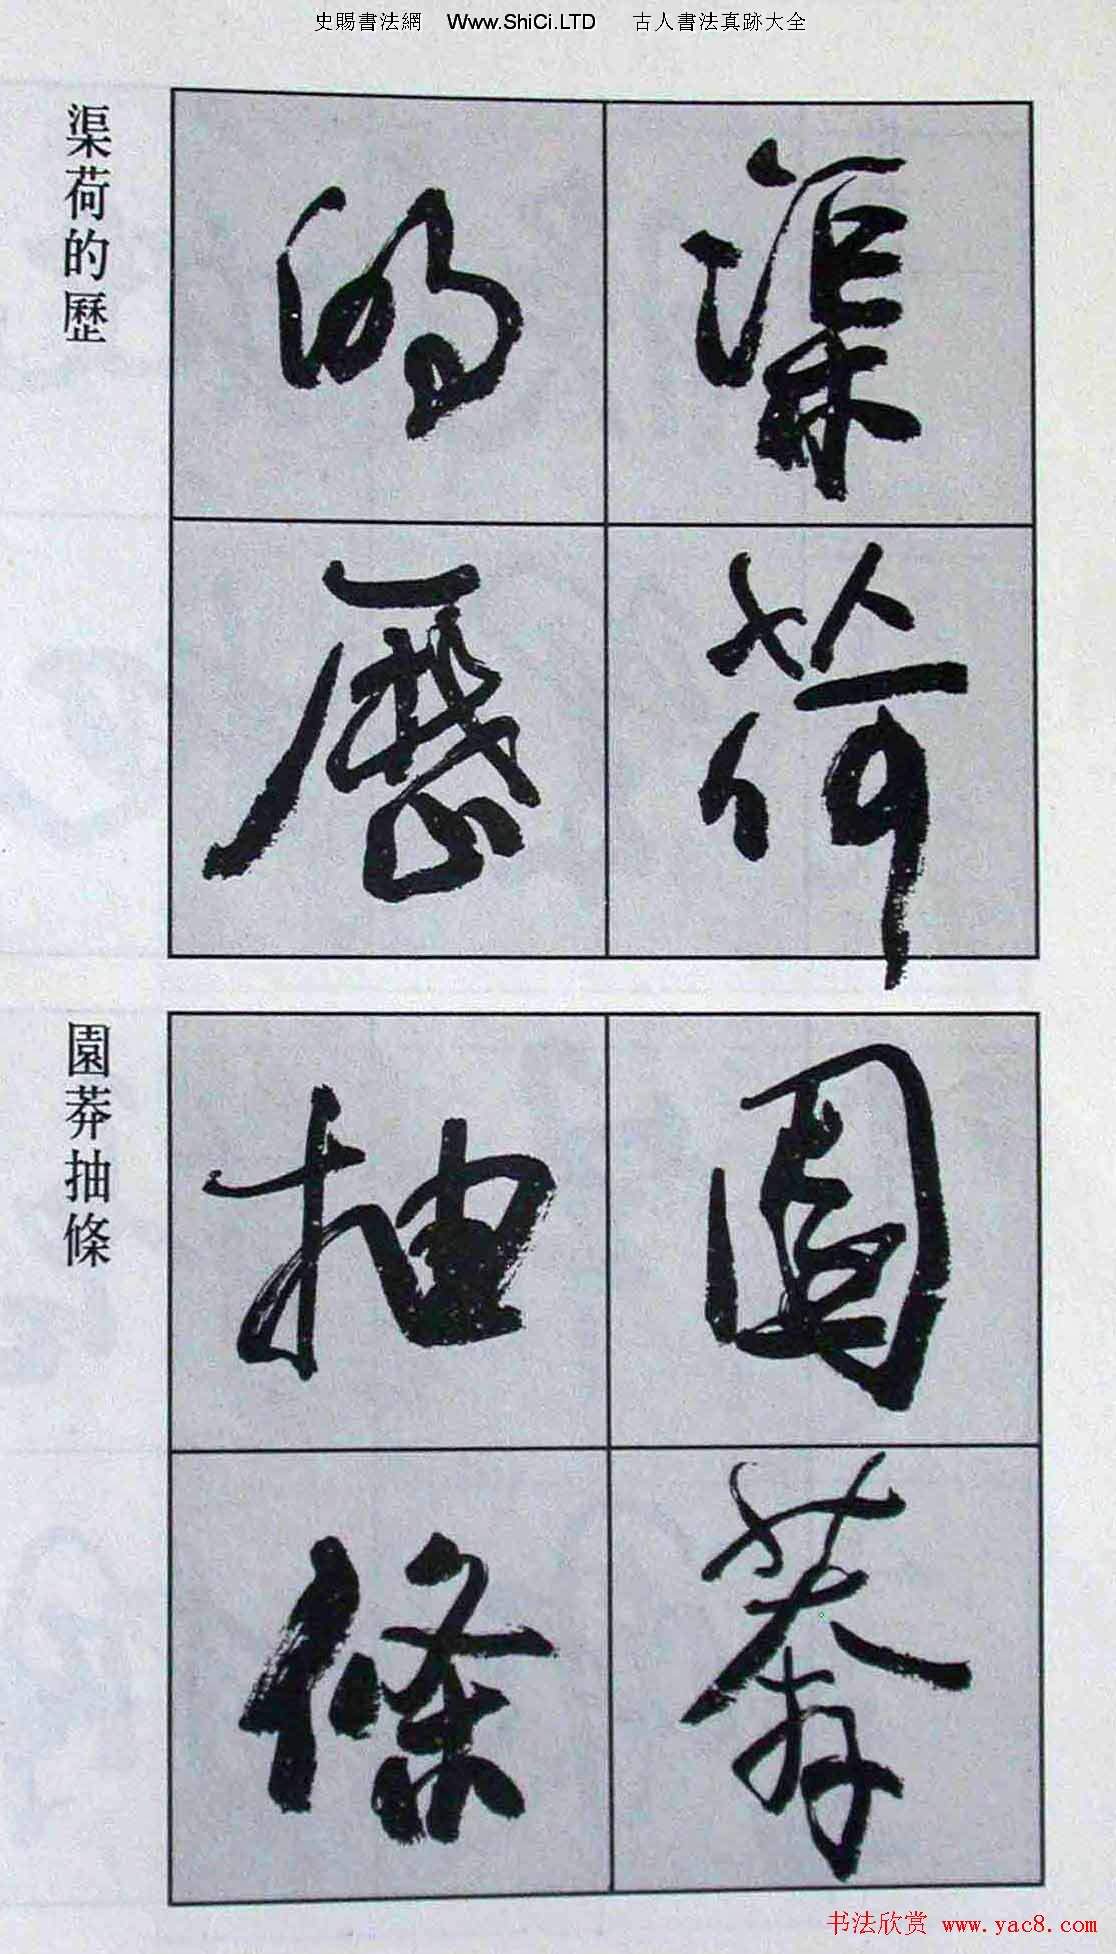 史賜書法網 Www.ShiCi.LTD 古人書法真跡大全
渠荷的歷
渠荷
的歷
園莽抽條
園莽
抽條
书法欣赏 www.yac8.com